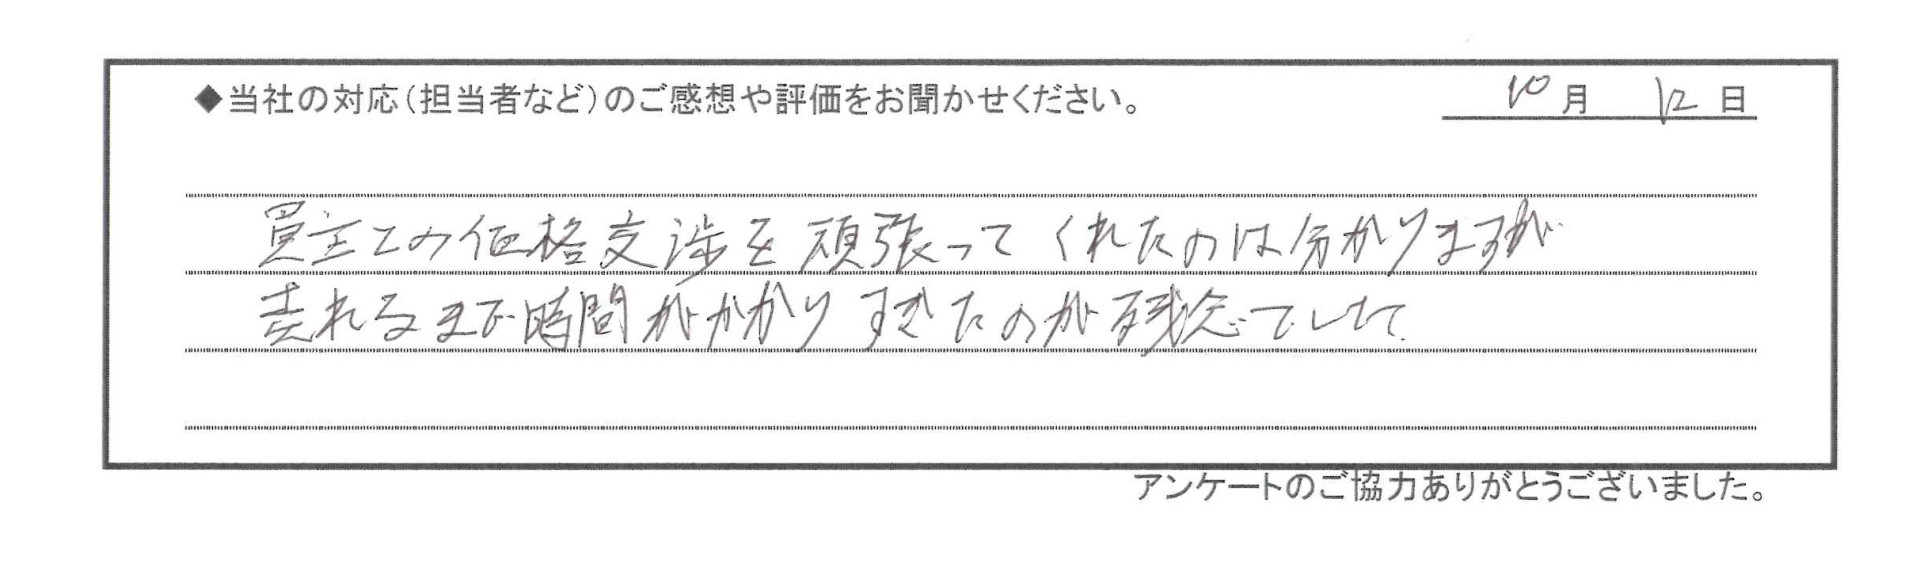 ◆当社の対応(担当者など)のご感想や評価をお聞かせください。 10月 12日
買主との価格交渉を頑張ってくれたのは分かりますが
売れるまで時間がかかりすぎたのが残念でした
アンケートのご協力ありがとうございました。